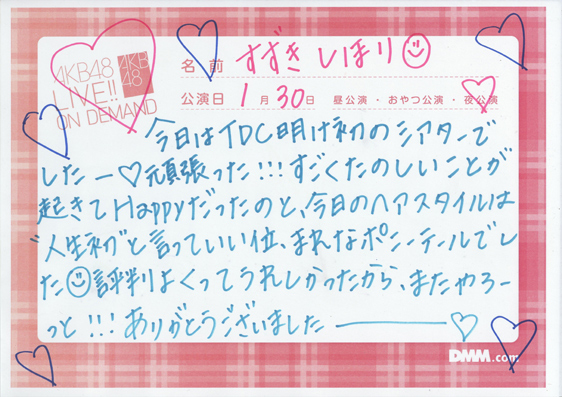 AKB48
LIVE!!
ON DEMAND
AKB
48
名前 すずきしほり
公演日 1月30日 昼公演・おやつ公演・夜公演
今日はTDC明け初のシアターで
したー♡頑張った!!!すごくたのしいことが
起きてHappyだったのと、今日のヘアスタイルは
"人生初"と言っていい位、まれなポニーテールでし
た☺評判よくってうれしかったから、またやろー
っと!!!ありがとうございました―――♡
DMM.com